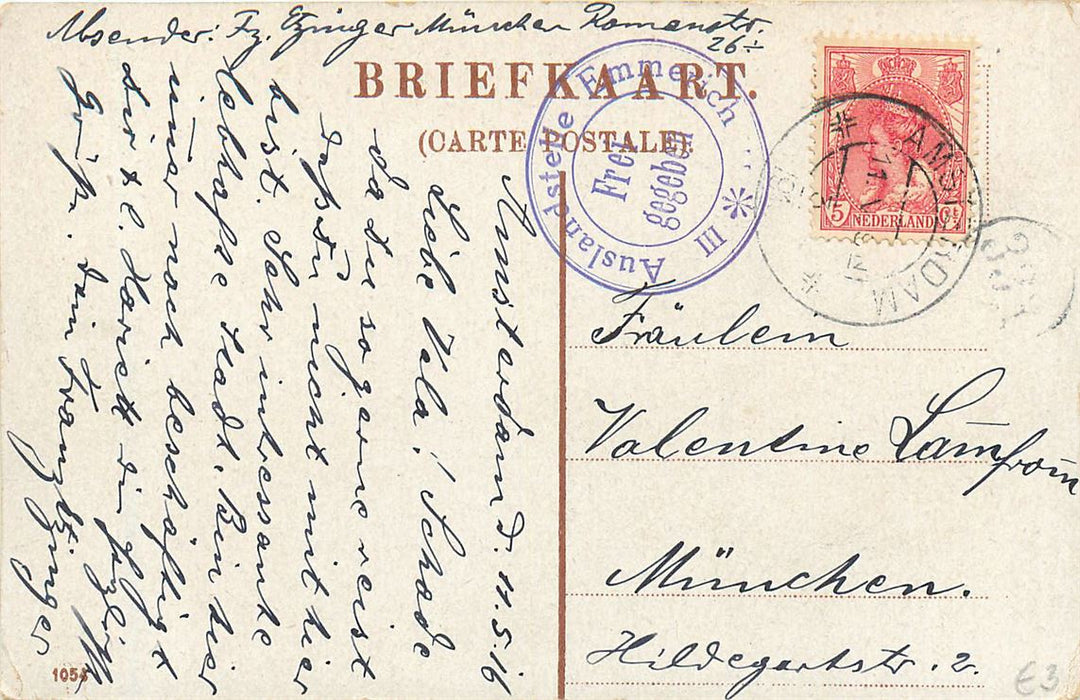 Absender: Fz. Etzinger München Romanstr.
26 I
BRIEFKAART.
(CARTE POSTALE).
Auslandstelle Emmerich III
Frei
gegeben
AMSTERDAM
5 Ct
NEDERLAND
Amsterdam d. 11.5.16
Liebe Vala! Schade
da du so gerne reist
daß du nicht mit hier
bist. Sehr intressante
lebhafte Stadt. Bin hier
immer noch beschäftigt
dir &. Hariett die
Grüße. dein Franz
Etzinger
Fräulein
Valentine
München.
Hildegardstr. 2.
1054
€3